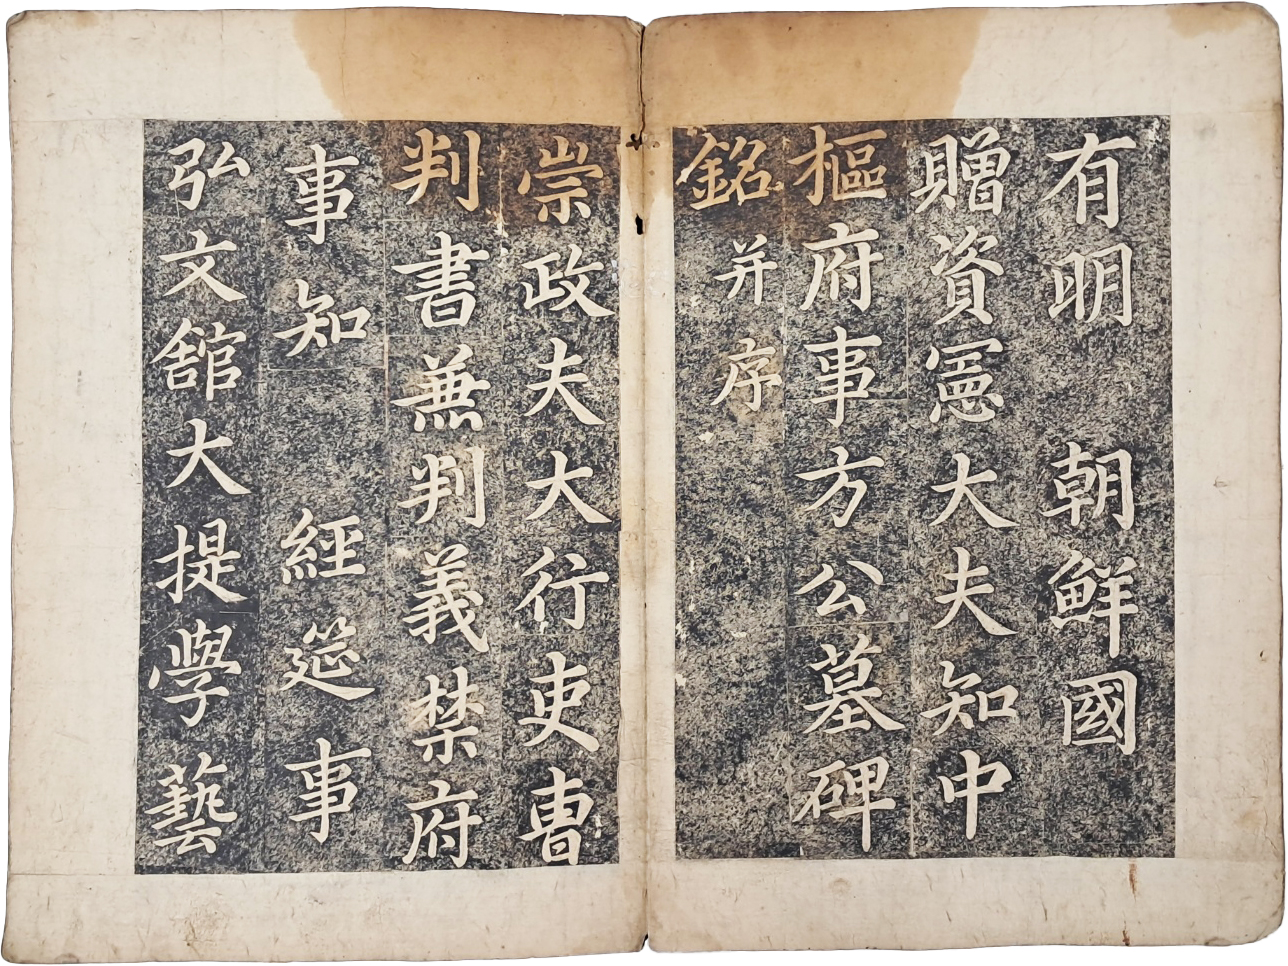 有明 朝鮮國
贈資憲大夫知中
樞府事方公墓碑
銘 并序
崇政夫大行吏曺
判書兼判義禁府
事知 經筵事
弘文舘大提學藝